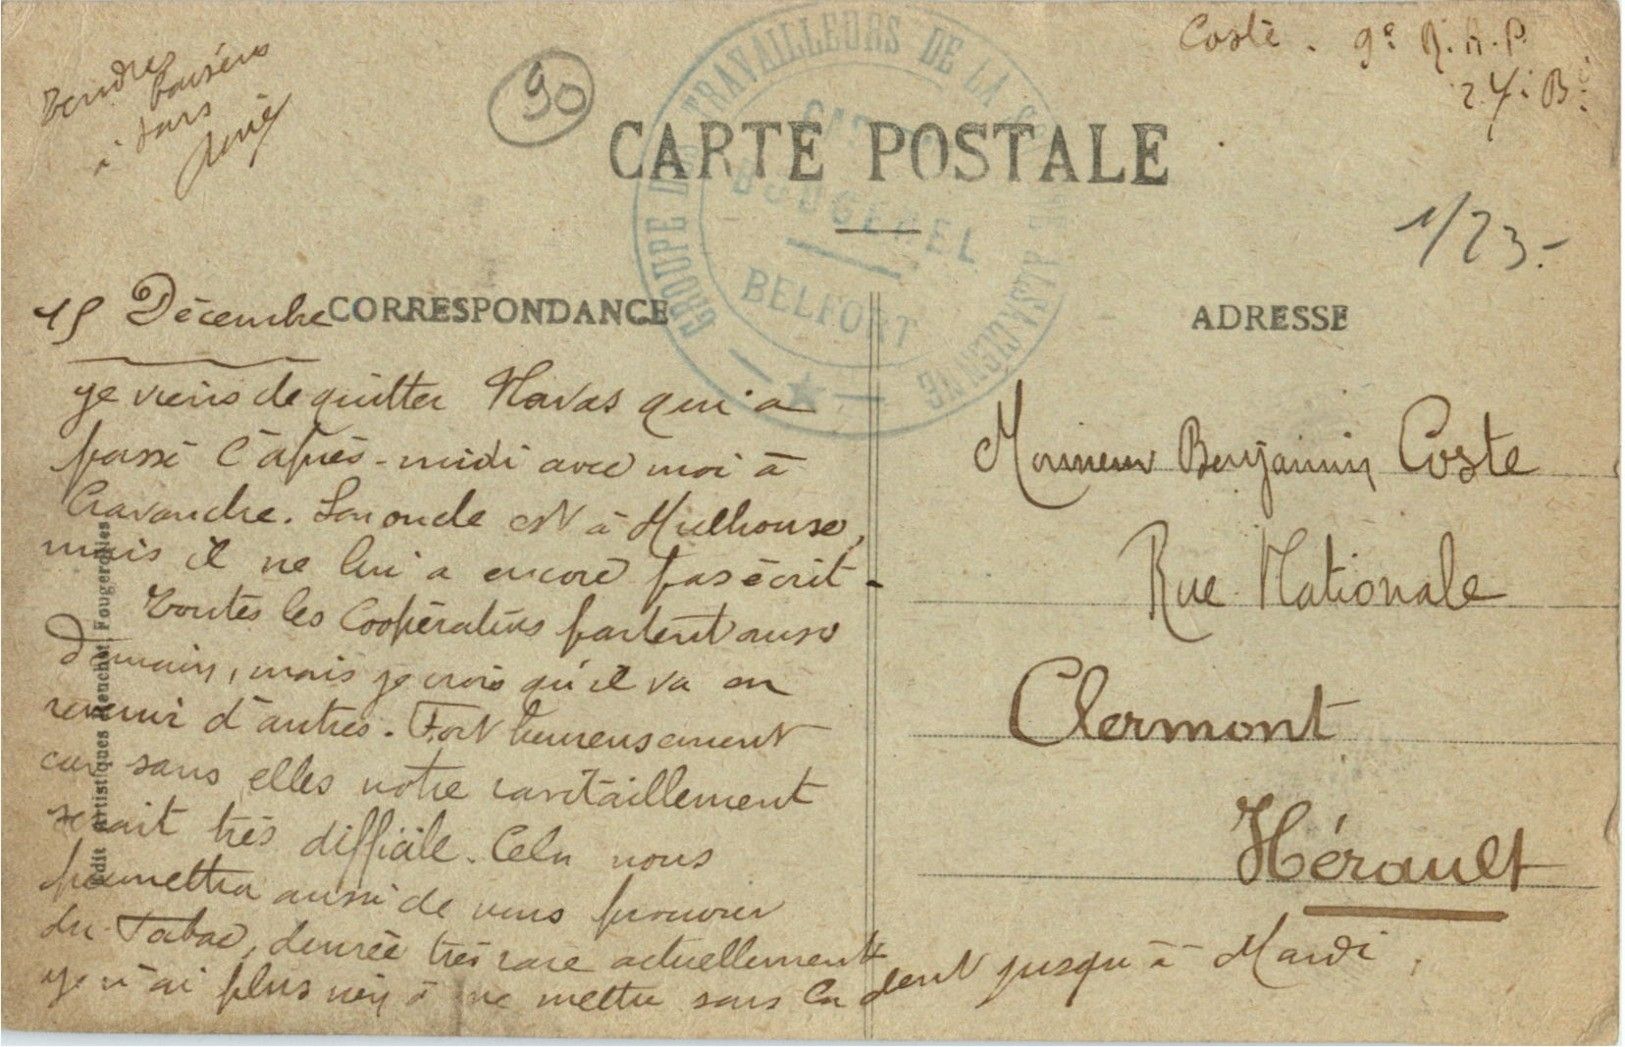 Tendres
baisers
à tous
90
Coste. 9e R.A.P.
24e Bie
CARTE POSTALE
GROUPE DES TRAVAILLEURS DE LA ALSACIENNE
BOUGENEL
BELFORT
1/23.-
15 Décembre
CORRESPONDANCE
ADRESSE
Je viens de quitter Navas qui a
passé l'après-midi avec moi à
Cravanche. Son oncle est à Mulhouse,
mais il ne lui a encore pas écrit -
Toutes les Coopératives partent aussi
demain, mais je crois qu'il va en
revenir d'autres. Fort heureusement
car sans elles notre ravitaillement
serait très difficile. Cela nous
permettra aussi de vous procurer
du Tabac, denrée très rare actuellement
je n'ai plus rien à me mettre sous la dent jusqu'à Mardi.
Monsieur Benjamin Coste
Rue Nationale
Clermont
Hérault
Edit Artistiques Reuchet, Fougerolles